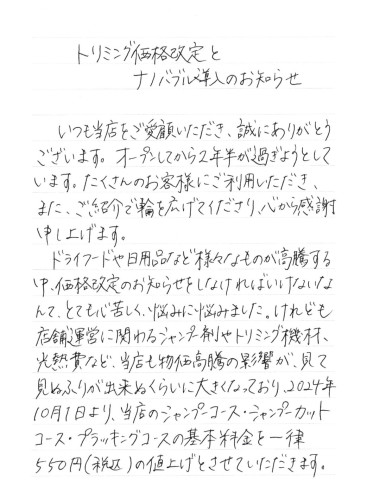 トリミング価格改定と
ナノバブル導入のお知らせ
いつも当店をご愛顧いただき、誠にありがとう
ございます。オープンしてから2年半が過ぎようとして
います。たくさんのお客様にご利用いただき、
また、ご紹介で輪を広げてくださり、心から感謝
申し上げます。
ドライフードや日用品など様々なものが高騰する
中、価格改定のお知らせをしなければいけないなん
て、とても心苦しく、悩みに悩みました。けれども
店舗運営に関わるシャンプー剤やトリミング機材、
光熱費など、当店も物価高騰の影響が、見て
見ぬふりが出来ぬくらいに大きくなっており、2024年
10月1日より、当店のシャンプーコース・シャンプーカット
コース・プラッキングコースの基本料金を一律
550円(税込)の値上げとさせていただきます。